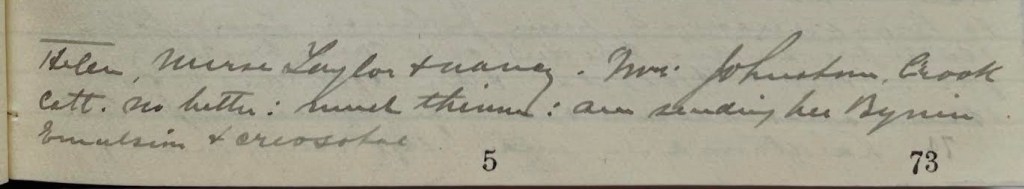 Helen, Nurse Taylor & Nancy. Mrs. Johnston, Crook
Cott. no better: much thinner: am sending her Bynin
Emulsion & creosotal
5 73